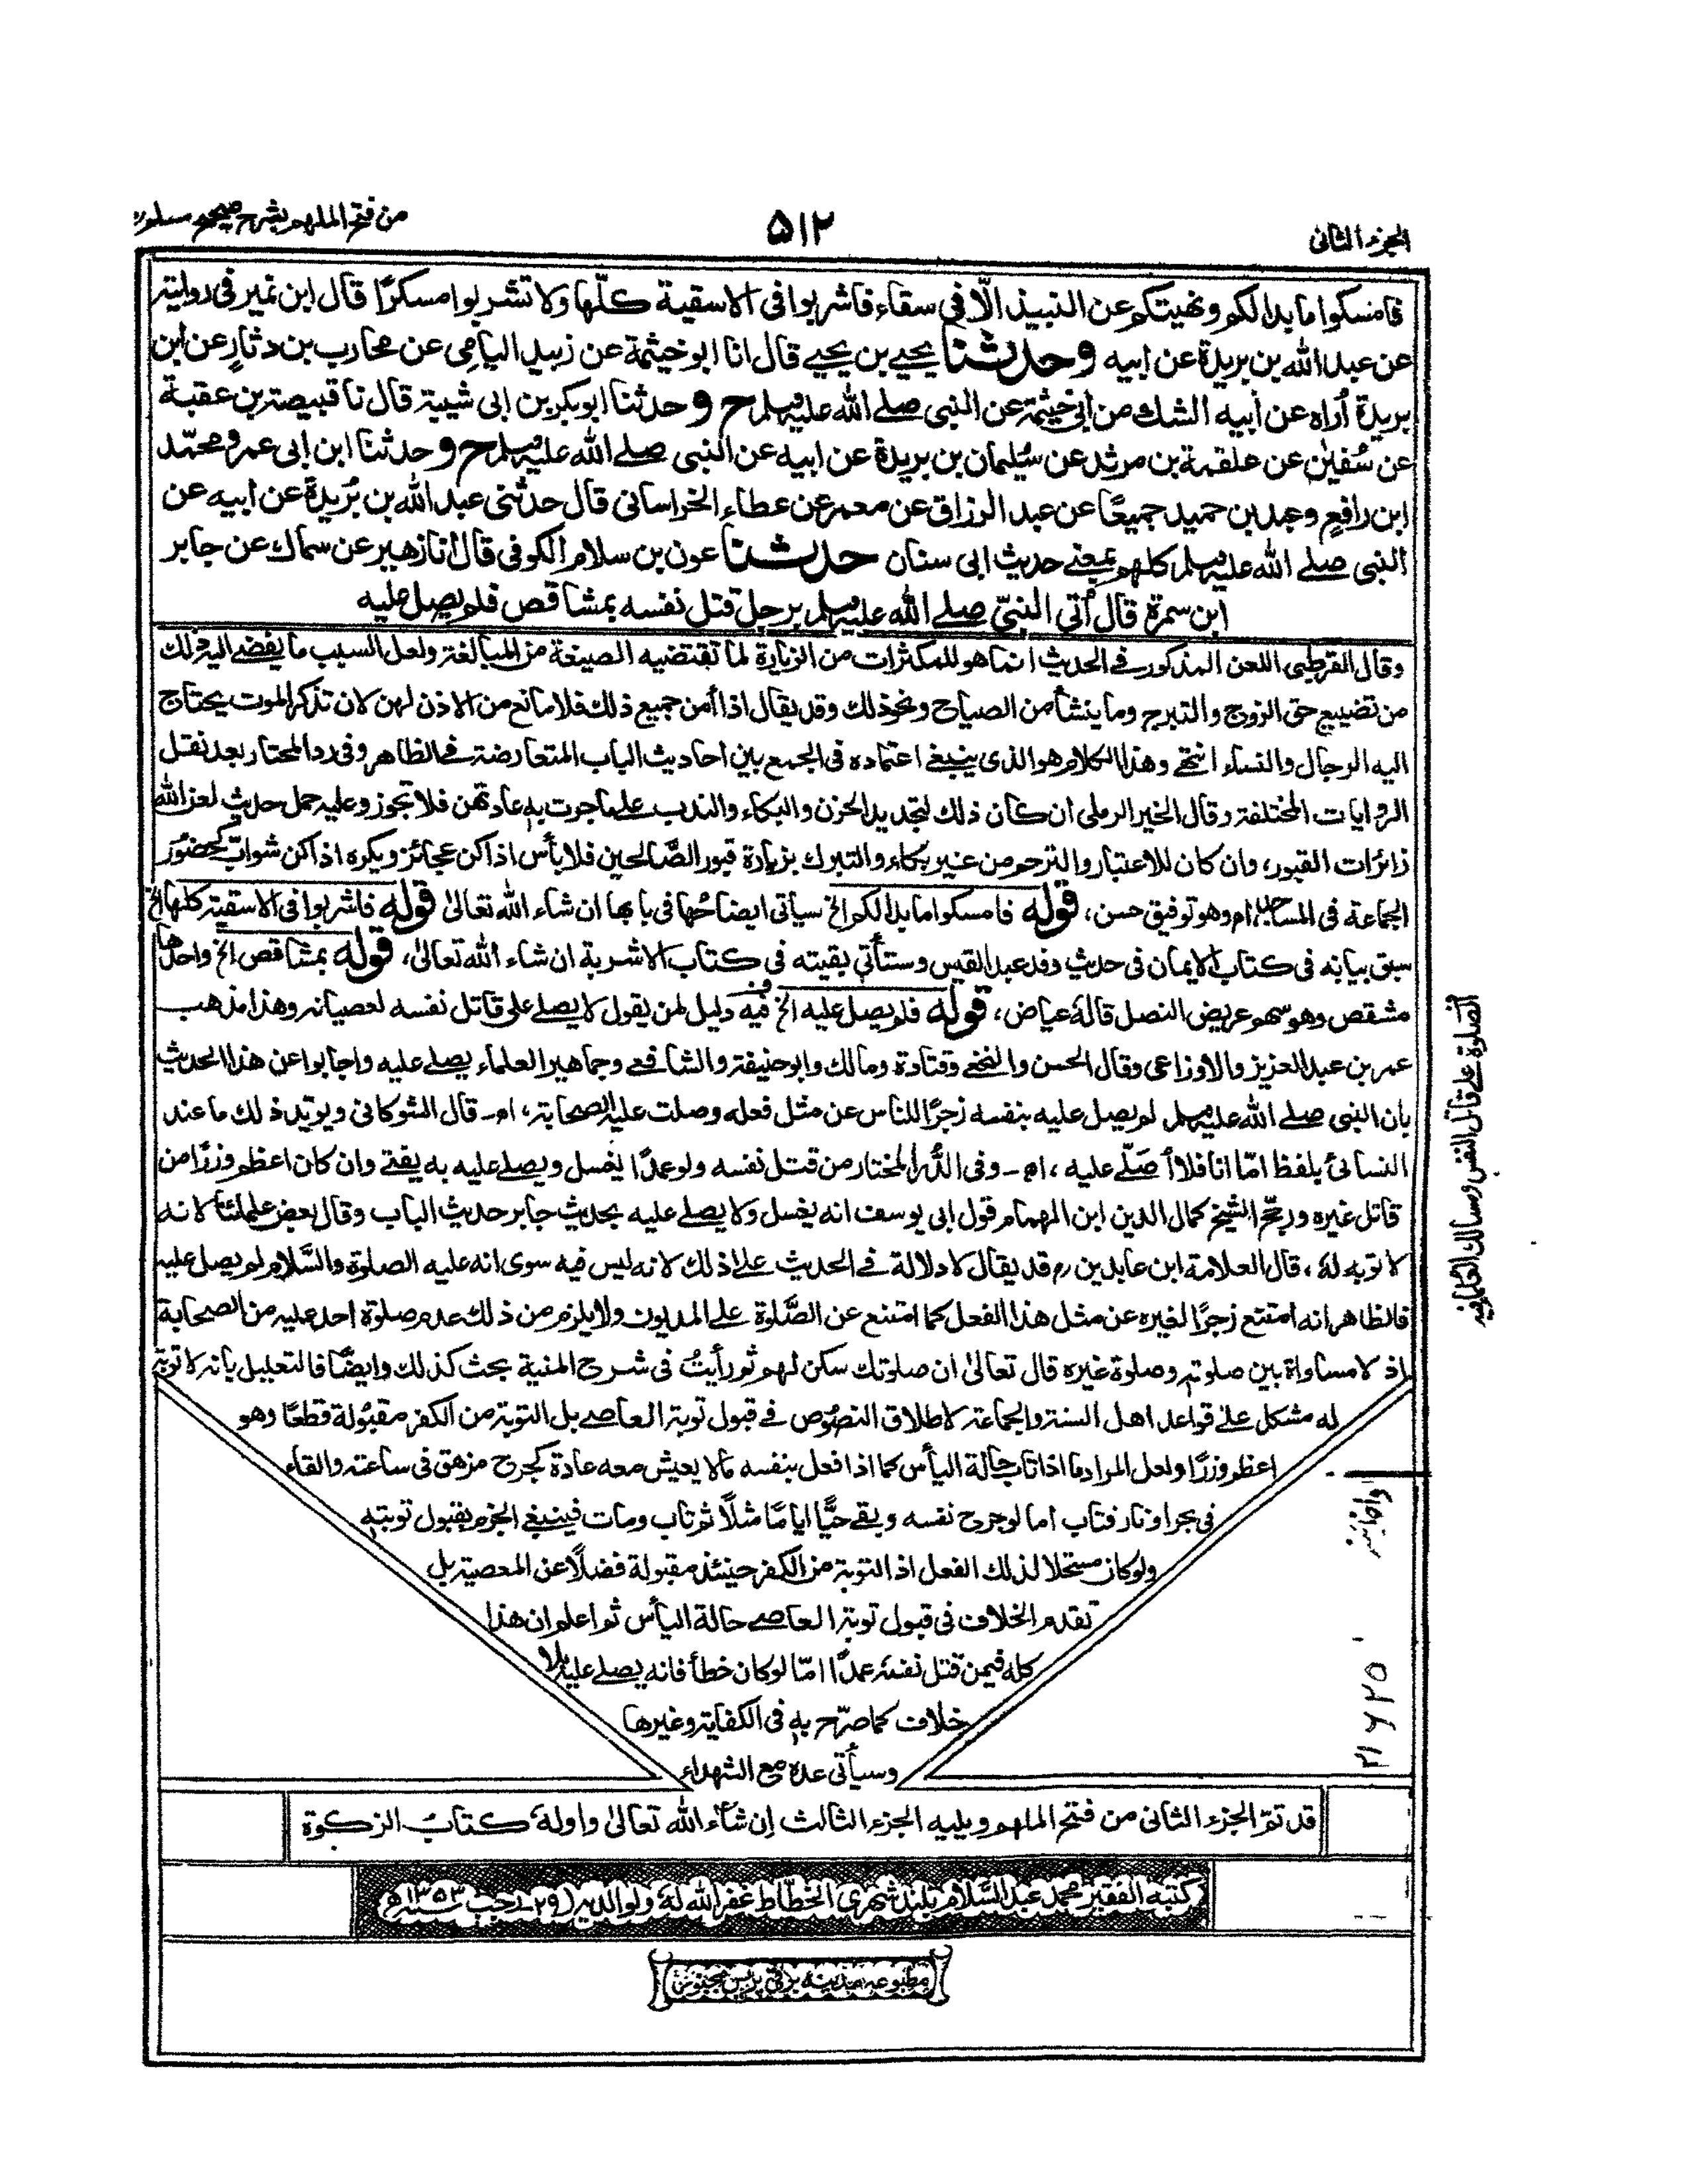 الجزء الثانى
۵۱۲
من فتح الملهم بشرح صحيح مسلم
فامسكوا ما بدا لكم ونهيتكم عن النبيذ الّا فى سقاء فاشربوا فى الاسقية كلّها ولا تشربوا مسكرًا قال ابن نمير فى روايته
عن عبد الله بن بريدة عن ابيه وحدثنا يحيى بن يحيى قال انا ابو خيثمة عن زبيد اليامى عن محارب بن دثارٍ عن ابن
بريدة اُراه عن أبيه الشك من ابى خيثمة عن النبى صلے الله عليه وسلم ح وحدثنا ابو بكر بن ابى شيبة قال نا قبيصة بن عقبة
عن سُفيٰن عن علقمة بن مرثد عن سُليمان بن بريدة عن ابيه عن النبى صلے الله عليه وسلم ح وحدثنا ابن ابى عمر ومحمّد
ابن رافعٍ وعبد بن حميد جميعًا عن عبد الرزاق عن معمر عن عطاء الخراسانى قال حدثنى عبد الله بن بُريدة عن ابيه عن
النبى صلے الله عليه وسلم كلهم بمعنے حديث ابى سنان حدثنا عون بن سلام الكوفى قال انا زهير عن سماك عن جابر
ابن سمرة قال اُتى النبىّ صلے الله عليه وسلم برجل قتل نفسه بمشاقص فلم يصل عليه
وقال القرطبى اللعن المذكور فے الحديث انما هو للمكثرات من الزيارة لما تقتضيه الصيغة من المبالغة ولعل السبب ما يفضے اليه ذلك
من تضييع حق الزوج والتبرج وما ينشأ من الصياح ونحو ذلك وقد يقال اذا أمن جميع ذلك فلا مانع من الاذن لهن لان تذكر الموت يحتاج
اليه الرجال والنساء انتهے وهذا الكلام هو الذى ينبغے اعتماده فى الجمع بين احاديث الباب المتعارضة فے الظاهر وفى رد المحتار بعد نقل
الروايات المختلفة وقال الخير الرملى ان كان ذلك لتجديد الحزن والبكاء والندب على ما جرت به عادتهن فلا تجوز وعليه حمل حديث لعن الله
زائرات القبور، وان كان للاعتبار والترحم من غير بكاء والتبرك بزيارة قبور الصّالحين فلا بأس اذا كن عجائز ويكره اذا كن شوابّ كحضور
الجماعة فى المساجد، اھ وهو توفيق حسن، قوله فامسكوا ما بدا لكم الخ سيأتى ايضاحُها فى بابها ان شاء الله تعالىٰ قوله فاشربوا فى الاسقية كلها الخ
سبق بيانه فى كتاب الايمان فى حديث وفد عبد القيس وستأتى بقيته فى كتاب الاشربة ان شاء الله تعالىٰ، قوله بمشاقص الخ واحدها
مشقص وهو سهم عريض النصل قاله عياض، قوله فلم يصل عليه الخ فيه دليل لمن يقول لا يصلے على قاتل نفسه لعصيانه وهذا مذهب
عمر بن عبد العزيز والاوزاعى وقال الحسن والنخعے وقتادة ومالك وابو حنيفة والشافعے وجماهير العلماء يصلے عليه واجابوا عن هذا الحديث
بان النبى صلے الله عليه وسلم لم يصل عليه بنفسه زجرًا للناس عن مثل فعله وصلت عليه الصحابة، اھ۔ قال الشوكانى ويؤيد ذلك ما عند
النسائى بلفظ امّا انا فلا اُصَلّے عليه، اھ۔ وفى الدُّر المختار من قتل نفسه ولو عمدًا يغسل ويصلے عليه به يفتے وان كان اعظم وزرًا من
قاتل غيره ورجّح الشيخ كمال الدين ابن الهمام قول ابى يوسف انه يغسل ولا يصلے عليه بحديث جابر حديث الباب وقال بعض علمائنا لانه
لا توبه له، قال العلامة ابن عابدين رح قد يقال لا دلالة فے الحديث علے ذلك لانه ليس فيه سوى انه عليه الصلوة والسَّلام لم يصل عليه
فالظاهر انه امتنع زجرًا لغيره عن مثل هذا الفعل كما امتنع عن الصَّلوة علے المديون ولا يلزم من ذلك عدم صلوة احد عليه من الصحابة
اذ لا مساواة بين صلوته وصلوة غيره قال تعالىٰ ان صلوتك سكن لهم ثم رأيتُ فى شرح المنية بحث كذلك وايضًا فالتعليل بانه لا توبة
له مشكل علے قواعد اهل السنة والجماعة لاطلاق النصُوص فے قبول توبة العاصے بل التوبة من الكفر مقبُولة قطعًا وهو
اعظم وزرًا ولعل المراد ما اذا تاب حالة اليأس كما اذا فعل بنفسه مالا يعيش معه عادة كجرح مزهق فى ساعته والقاء
فى بحر او نار فتاب اما لو جرح نفسه وبقے حيًّا ايامًا مثلًا ثم تاب ومات فينبغے الجزم بقبول توبته
ولو كان مستحلا لذلك الفعل اذ التوبة من الكفر حينئذ مقبولة فضلًا عن المعصية بل
تقدم الخلاف فى قبول توبة العاصے حالة اليأس ثم اعلم ان هذا
كله فيمن قتل نفسه عمدًا امّا لو كان خطأ فانه يصلے عليه بلا
خلاف كما صرّح به فى الكفاية وغيرها
وسيأتى عده مع الشهداء
الصلوة علے قاتل النفس ومسالك العلماء فيه
۲۱۶۲۵
قد تمّ الجزء الثانى من فتح الملهم ويليه الجزء الثالث إن شاء الله تعالىٰ واوله كتابُ الزكوة
كتبه الفقير محمد عبد السّلام بلندشهرى الخطّاط غفر الله له ولوالديه (۲۹ رجب سنه ۱۳۵۳ھ)
مطبوعه مدينه برقى پريس بجنور